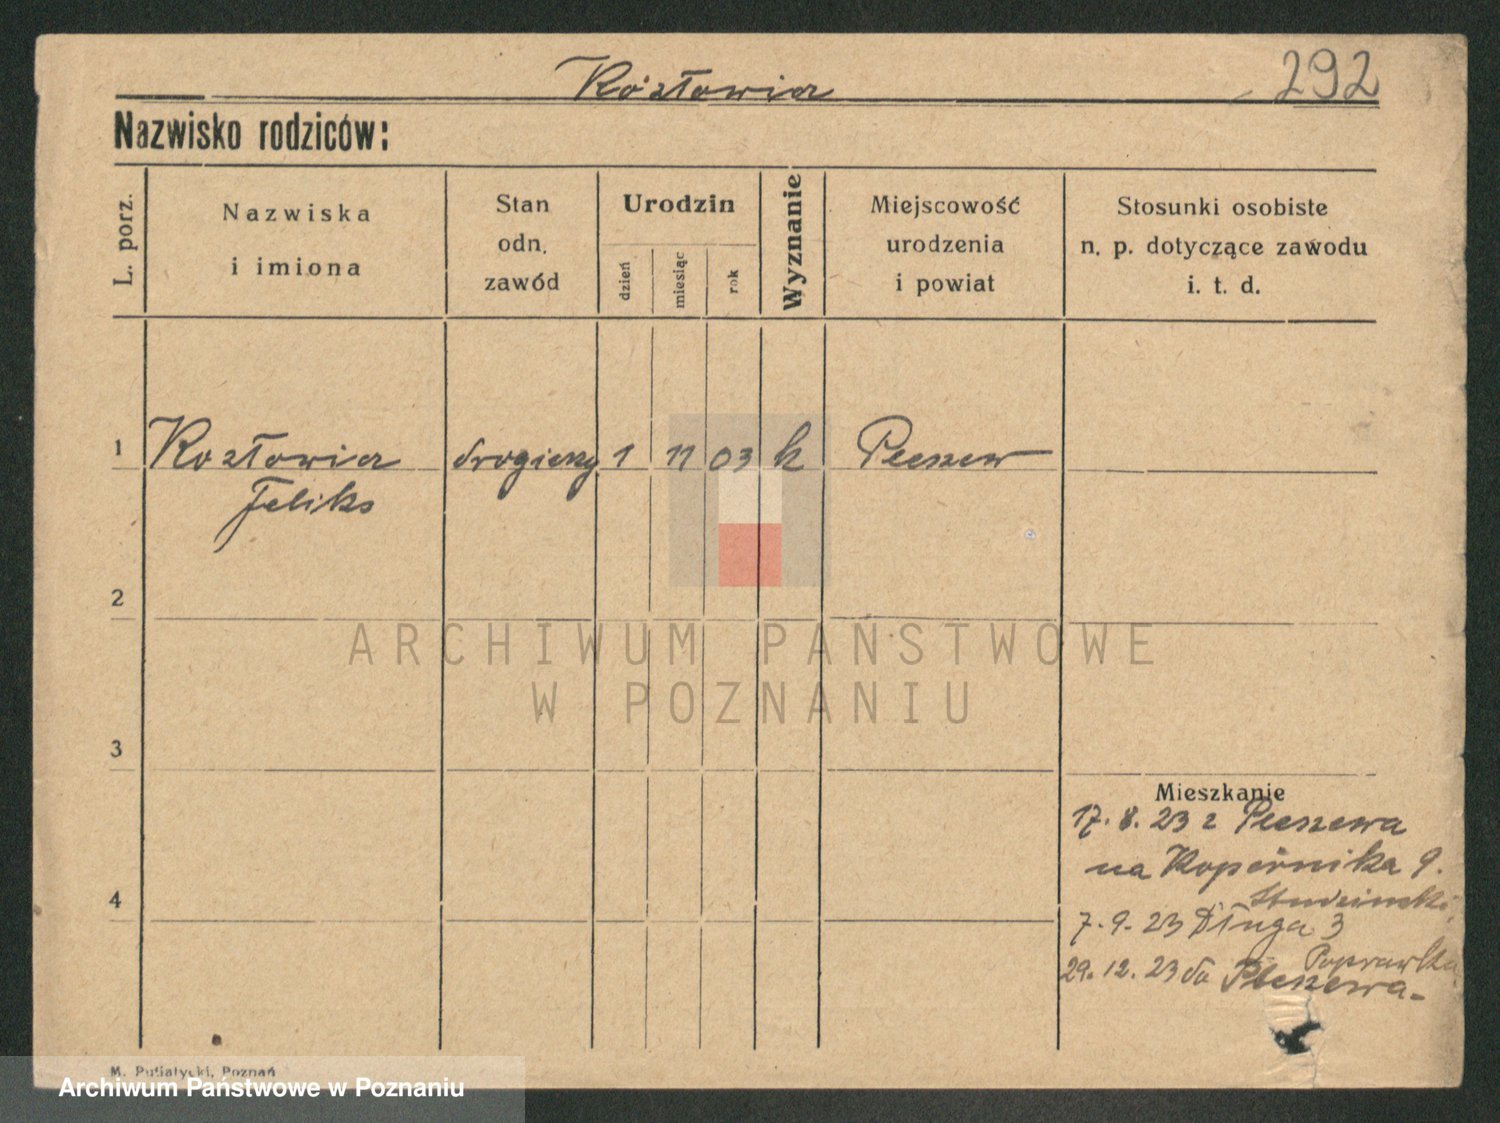 Kozłowicz
292
Nazwisko rodziców:
L. porz.
Nazwiska
i imiona
Stan
odn.
zawód
Urodzin
dzień
miesiąc
rok
Wyznanie
Miejscowość
urodzenia
i powiat
Stosunki osobiste
n. p. dotyczące zawodu
i. t. d.
1 Kozłowicz 1 11 03 k Pleszew
Feliks
2
ARCHIWUM PAŃSTWOWE
W POZNANIU
3
Mieszkanie
17. 8. 23 z Pleszewa
na Kopernika 9.
4
7. 9. 23 Długa 3
Poprawska
29. 12. 23 do Pleszewa
M. Putiatycki, Poznań
Archiwum Państwowe w Poznaniu